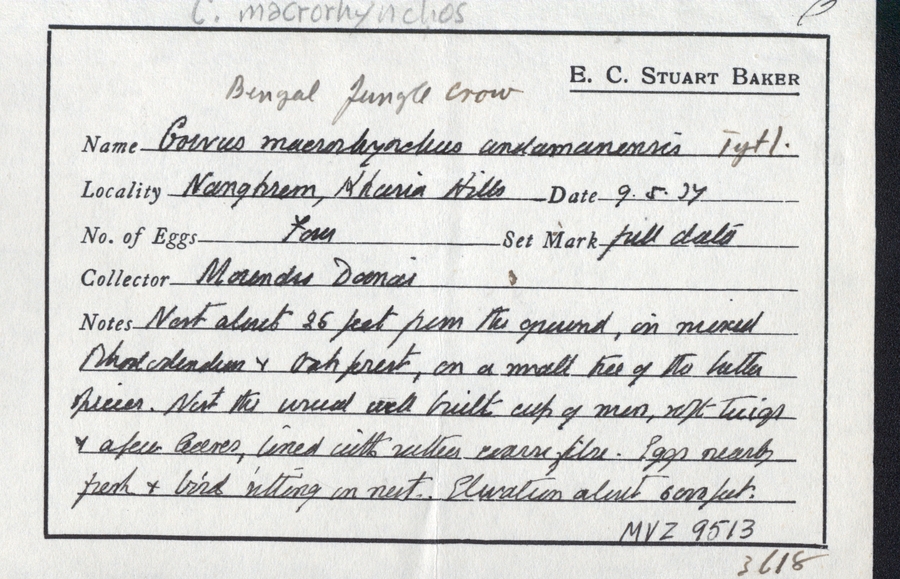 C. macrorhynchos
E. C. STUART BAKER
Bengal Jungle Crow
Name Corvus macrorhynchus andamanensis Tytl.
Locality Nanghrem, Kharia Hills Date 9. 5. 
No. of Eggs Four Set Mark full data
Collector
Notes Nest about 25 feet from the ground, in mixed
Rhododendron & Oak forest, on a small tree of the latter
species. Nest the usual well built cup of moss, soft twigs
& a few leaves, lined with rather coarse fibre. Eggs nearly
fresh & bird sitting on nest. Elevation about 6000 feet.
MVZ 9513
3618